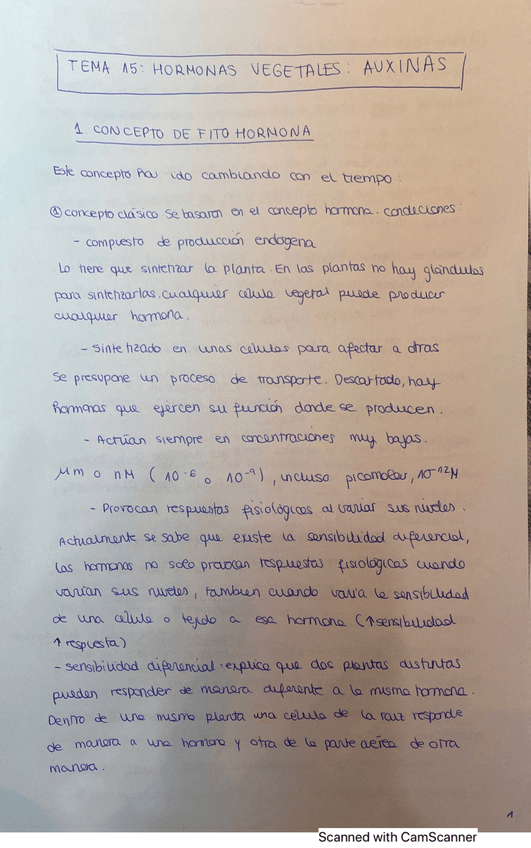 TEMA 15: HORMONAS VEGETALES: AUXINAS
1. CONCEPTO DE FITOHORMONA
Este concepto ha ido cambiando con el tiempo:
① concepto clásico se basaron en el concepto hormona. condiciones:
- compuesto de producción endogena
Lo tiene que sintetizar la planta. En las plantas no hay glándulas
para sintetizarlas. cualquier célula vegetal puede producir
cualquier hormona.
- Sintetizado en unas células para afectar a otras
Se presupone un proceso de transporte. Descartado, hay
hormonas que ejercen su función donde se producen.
- Actúan siempre en concentraciones muy bajas.
μm o nM (10⁻⁶ o 10⁻⁹), incluso picomolar, 10⁻¹²M
- Provocan respuestas fisiológicas al variar sus niveles.
Actualmente se sabe que existe la sensibilidad diferencial,
las hormonas no solo provocan respuestas fisiológicas cuando
varían sus niveles, tambien cuando varía la sensibilidad
de una célula o tejido a esa hormona (↑sensibilidad
↑ respuesta)
- sensibilidad diferencial: explica que dos plantas distintas
pueden responder de manera diferente a la misma hormona.
Dentro de una misma planta una célula de la raiz responde
de manera a una hormona y otra de la parte aérea de otra
manera.
1
Scanned with CamScanner